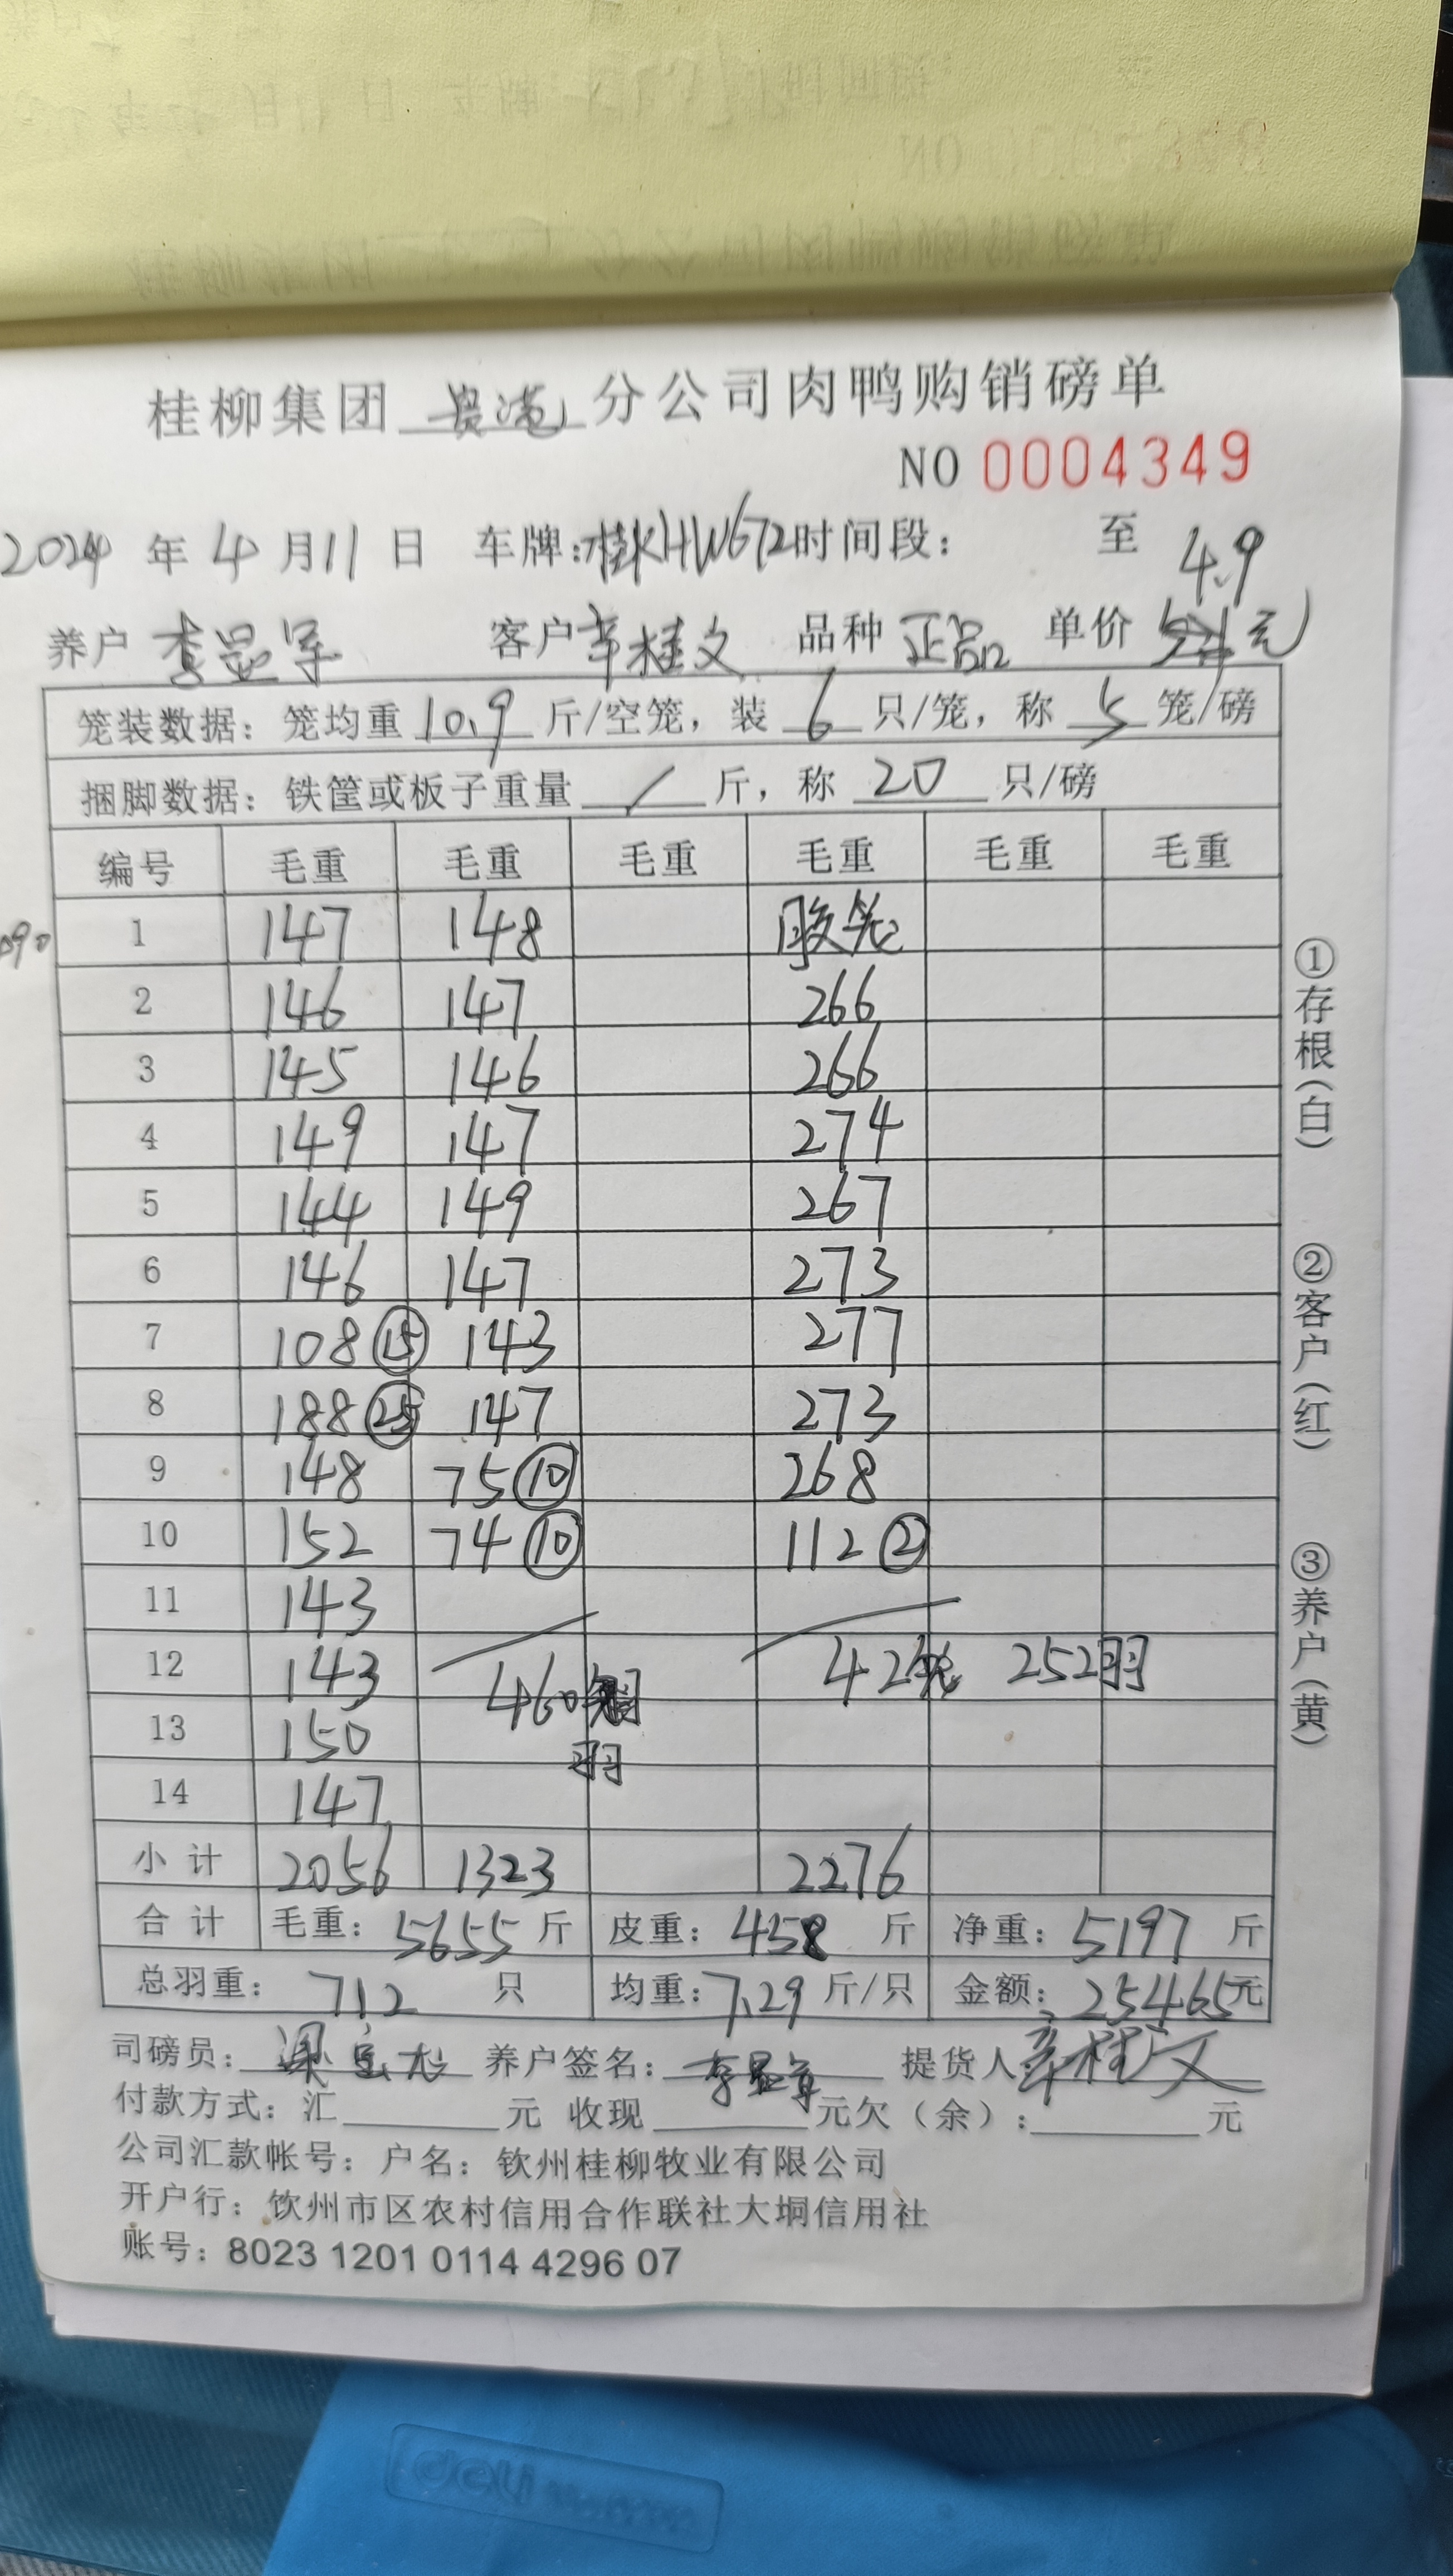 桂柳集团 贵港 分公司肉鸭购销磅单
NO 0004349
2024 年 4 月 11 日 车牌:桂KHW672 时间段: 至
4.9
养户 李显军 客户 辛桂文 品种 正品 单价 元
笼装数据: 笼均重 10.9 斤/空笼, 装 6 只/笼, 称 5 笼/磅
捆脚数据: 铁筐或板子重量 / 斤, 称 20 只/磅
编号 毛重 毛重 毛重 毛重 毛重 毛重
1 147 148 胶笼
2 146 147 266
3 145 146 266
4 149 147 274
5 144 149 267
6 146 147 273
7 108 ⑮ 143 277
8 188 ㉕ 147 273
9 148 75 ⑩ 268
10 152 74 ⑩ 112 ②
11 143
12 143 460 42笼 252羽
13 150 羽
14 147
小计 2056 1323 2276
合计 毛重: 5655 斤 皮重: 458 斤 净重: 5197 斤
总羽重: 712 只 均重: 7.29 斤/只 金额: 25465 元
司磅员: 养户签名: 李显军 提货人 辛桂文
付款方式: 汇 元 收现 元欠(余): 元
公司汇款帐号: 户名: 钦州桂柳牧业有限公司
开户行: 钦州市区农村信用合作联社大垌信用社
账号: 8023 1201 0114 4296 07
①存根(白)
②客户(红)
③养户(黄)
deli